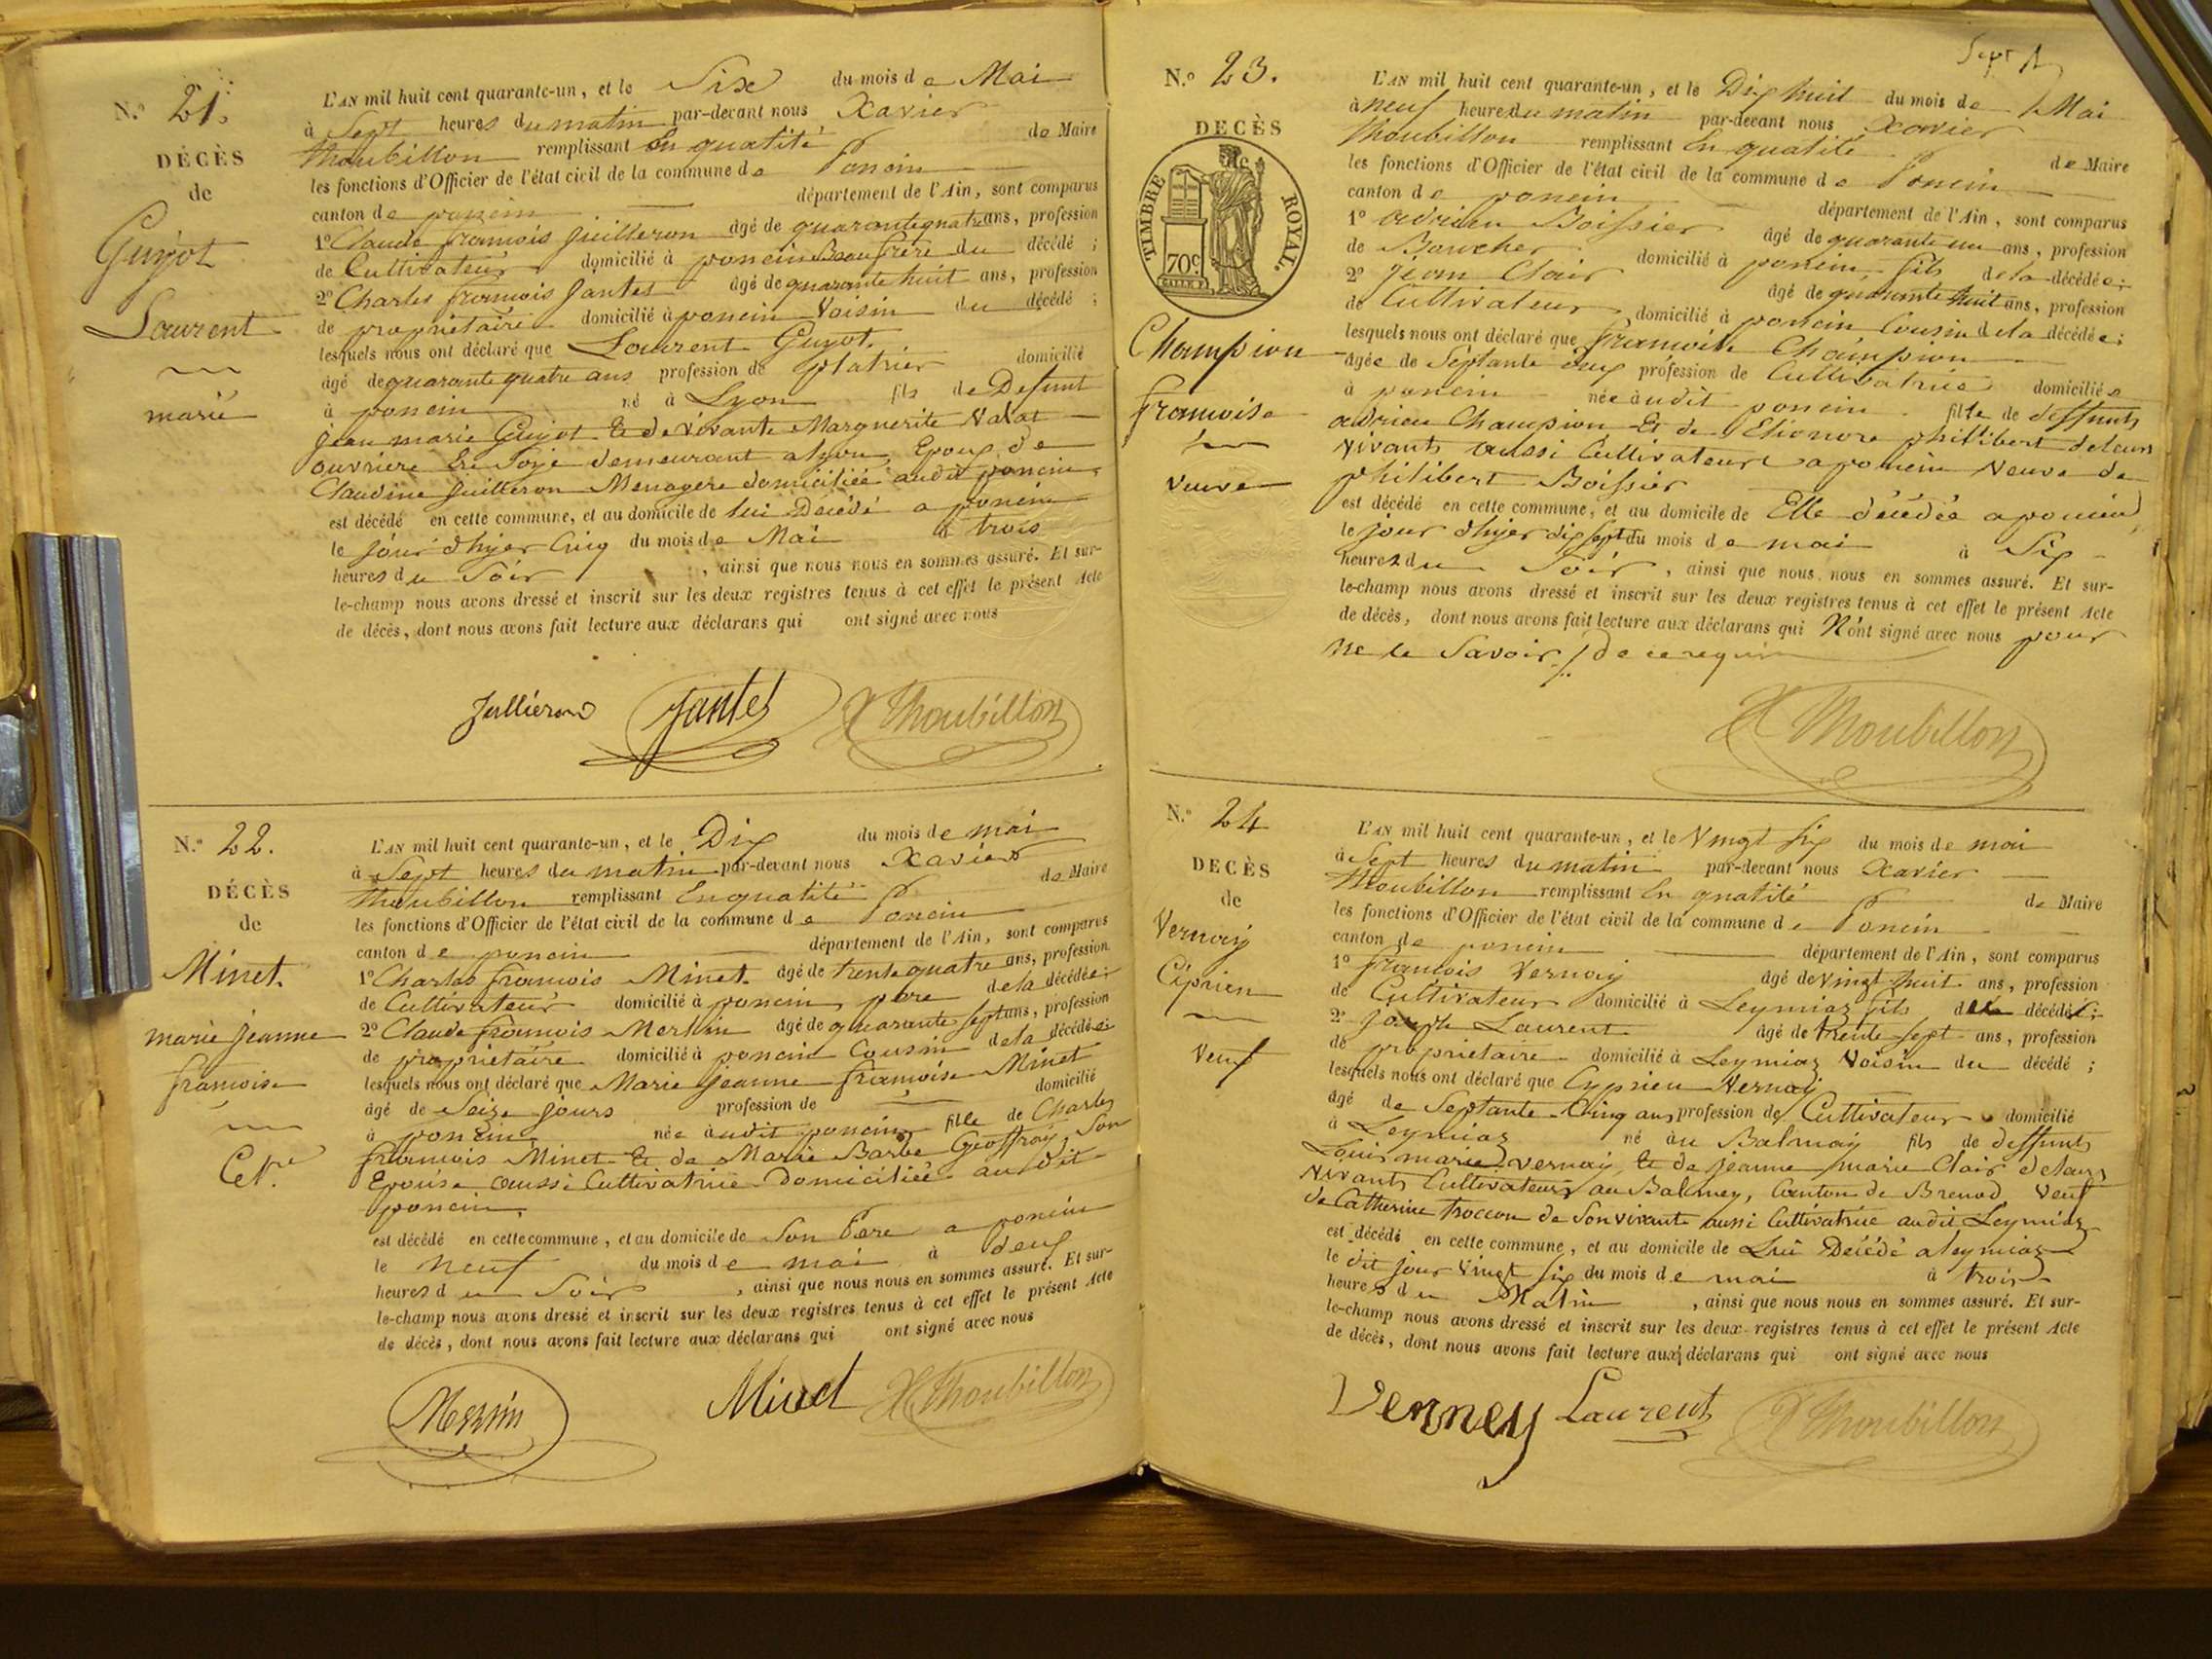 N.º 21.
DÉCÈS
de
Guyot
Laurent
marié
L'AN mil huit cent quarante-un, et le Six du mois de Mai
à Sept heures du matin par-devant nous Xavier
Thoubillon remplissant En qualité de Maire
les fonctions d'Officier de l'état civil de la commune de Poncin
canton de poncin département de l'Ain, sont comparus
1º Claude françois Juilleron âgé de quarante quatre ans, profession
de Cultivateur domicilié à poncin Beaufrère du décédé ;
2º Charles françois Jantet âgé de quarante huit ans, profession
de propriétaire domicilié à poncin Voisin du décédé ;
lesquels nous ont déclaré que Laurent Guyot.
âgé de quarante quatre ans profession de platrier domicilié
à poncin né à Lyon fils de Defunt
jean marie Guyot Et de vivante Marguerite Valat
ouvriere En Soye demeurant a lyon, Epoux de
Claudine Juilleron Menagere domiciliée audit poncin
est décédé en cette commune, et au domicile de lui Décédé a poncin
le jour d'hyer Cinq du mois de Mai à trois
heures du Soir , ainsi que nous nous en sommes assuré. Et sur-
le-champ nous avons dressé et inscrit sur les deux registres tenus à cet effet le présent Acte
de décès, dont nous avons fait lecture aux déclarans qui ont signé avec nous
Julliéron Jantet X Thoubillon
N.º 22.
DÉCÈS
de
Minet.
marie jeanne
françoise
Cet.re
L'AN mil huit cent quarante-un, et le Dix du mois de mai
à Sept heures du matin par-devant nous Xavier
Thoubillon remplissant En qualité de Maire
les fonctions d'Officier de l'état civil de la commune de Poncin
canton de poncin département de l'Ain, sont comparus
1º Charles françois Minet. âgé de trente quatre ans, profession
de Cultivateur domicilié à poncin, père de la décédée ;
2º Claude françois Mermin âgé de quarante sept ans, profession
de propriétaire domicilié à poncin Cousin de la décédée ;
lesquels nous ont déclaré que Marie jeanne françoise Minet
âgé de Seize jours profession de domicilié
à poncin née audit poncin fille de Charles
françois Minet Et de Marie Barbe Geoffray Son
Epouse aussi Cultivatrice Domiciliée audit
poncin.
est décédé en cette commune, et au domicile de Son Père a poncin
le neuf du mois de mai à deux
heures du Soir , ainsi que nous nous en sommes assuré. Et sur-
le-champ nous avons dressé et inscrit sur les deux registres tenus à cet effet le présent Acte
de décès, dont nous avons fait lecture aux déclarans qui ont signé avec nous
Mermin Minet X Thoubillon
Sept
N.º 23.
DECÈS
TIMBRE ROYAL.
70c
Champion
françoise
veuve
L'AN mil huit cent quarante-un, et le Dix huit du mois de Mai
à neuf heures du matin par-devant nous Xavier
Thoubillon remplissant En qualité de Maire
les fonctions d'Officier de l'état civil de la commune de Poncin
canton de poncin département de l'Ain, sont comparus
1º adrien Boissier âgé de quarante un ans, profession
de Boucher domicilié à poncin, fils de la décédée ;
2º jean Clair âgé de quarante huit ans, profession
de Cultivateur domicilié à poncin Cousin de la décédée ;
lesquels nous ont déclaré que françoise Champion
âgée de Septante deux profession de Cultivatrice domiciliée
à poncin née audit poncin fille de deffunts
adrien Champion Et de Elionore philibert de leurs
vivants aussi Cultivateurs a poncin Veuve de
philibert Boissier
est décédé en cette commune, et au domicile de Elle décédée a poncin
le jour d'hyer dix sept du mois de mai à Six
heures du Soir , ainsi que nous nous en sommes assuré. Et sur-
le-champ nous avons dressé et inscrit sur les deux registres tenus à cet effet le présent Acte
de décès, dont nous avons fait lecture aux déclarans qui N'ont signé avec nous pour
ne le Savoir / de ce requis
X Thoubillon
N.º 24
DECÈS
de
Vernay
Ciprien
Veuf
L'AN mil huit cent quarante-un, et le Vingt Six du mois de mai
à Sept heures du matin par-devant nous Xavier
Thoubillon remplissant En qualité de Maire
les fonctions d'Officier de l'état civil de la commune de Poncin
canton de poncin département de l'Ain, sont comparus
1º françois Vernay âgé de vingt huit ans, profession
de Cultivateur domicilié à Leymiaz fils du décédé ;
2º joseph Laurent âgé de trente sept ans, profession
de propriétaire domicilié à Leymiaz Voisin du décédé ;
lesquels nous ont déclaré que Cyprien Vernay
âgé de Septante Cinq ans profession de Cultivateur domicilié
à Leymiaz né au Balmay fils de deffunts
Louis marie vernay Et de jeanne marie Clair de leurs
vivants Cultivateurs au Balmey, Canton de Brenod, Veuf
de Catherine troccon de Son vivante aussi Cultivatrice audit Leymiaz
est décédé en cette commune, et au domicile de Lui Décédé a leymiaz
le dit jour vingt Six du mois de mai à trois
heures du Matin , ainsi que nous nous en sommes assuré. Et sur-
le-champ nous avons dressé et inscrit sur les deux registres tenus à cet effet le présent Acte
de décès, dont nous avons fait lecture aux déclarans qui ont signé avec nous
Vernney Laurent X Thoubillon